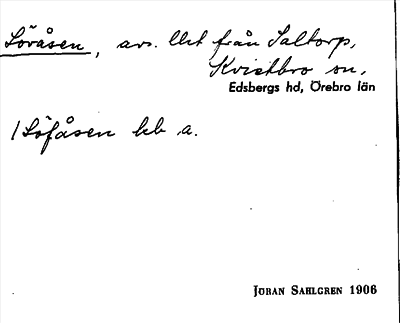 Löråsen, avs. llet från Saltorp,
Kvistbro sn,
Edsbergs hd, Örebro län
/Löfåsen hb a.
JÖRAN SAHLGREN 1906